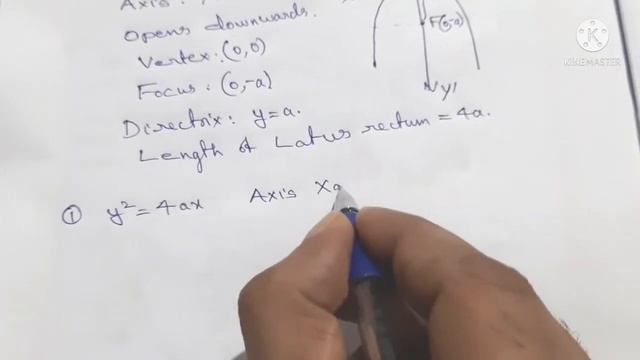 Axis :
Opens downwards.
Vertex : (0,0)
Focus : (0,-a)
Directrix : y=a.
Length of Latus rectum = 4a.
F(0,-a)
y'
① y² = 4ax Axis Xa
KINEMASTER